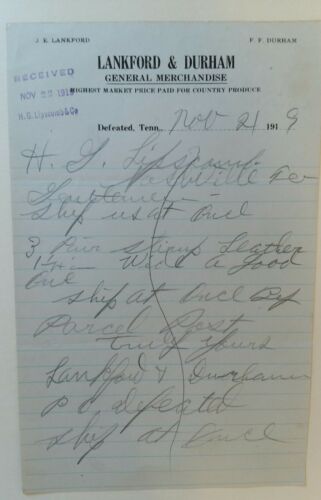 J. E. LANKFORD F. F. DURHAM
LANKFORD & DURHAM
GENERAL MERCHANDISE
HIGHEST MARKET PRICE PAID FOR COUNTRY PRODUCE
RECEIVED
NOV 22 1919
H.G. Lipscomb & Co
Defeated, Tenn., Nov 21 1919
H. G. Lipscomb
Nashville
Gentlemen
Ship us at Once
3 Pair Stirup Leather
Wide a Good
One
Ship at Once By
Parcel Post
Truly Yours
Lankford & Durham
P O defeated
Ship at Once